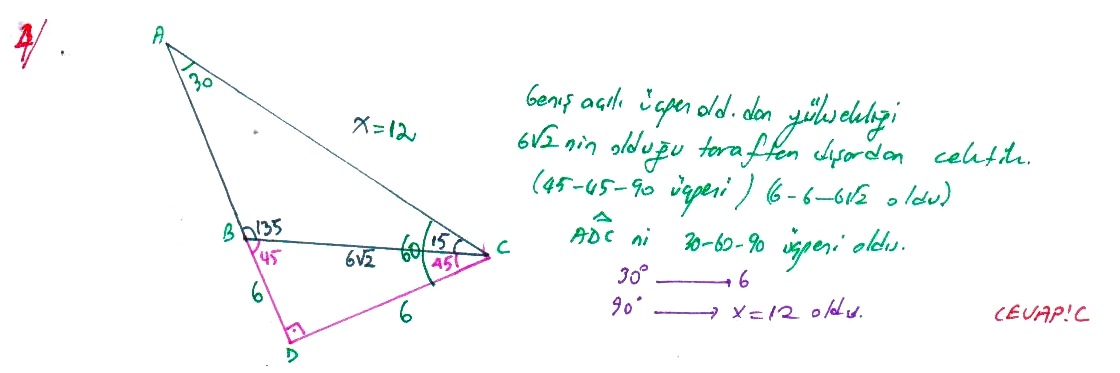 4/.
A
30
x=12
B
135
45
6√2
60
15
45
C
6
6
D
Geniş açılı üçgen old. dan yüksekliği
6√2 nin olduğu taraftan dışardan çektik.
(45-45-90 üçgeni) (6-6-6√2 oldu)
ADC ni 30-60-90 üçgeni oldu.
30° → 6
90° → x=12 oldu.
CEVAP:C